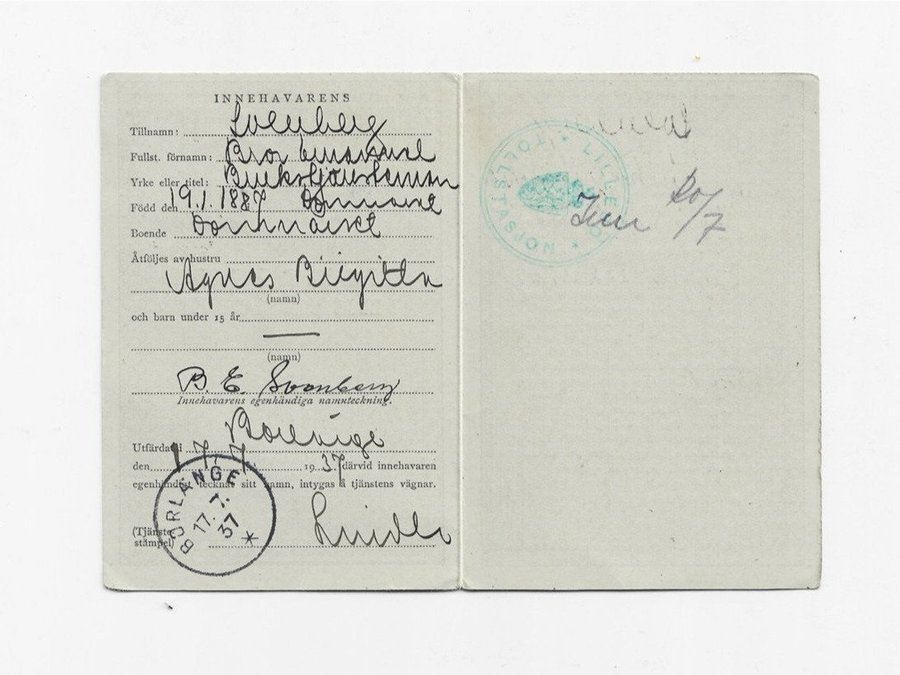 INNEHAVARENS
Tillnamn: Svenberg
Fullst. förnamn: Bror Emanuel
Yrke eller titel:
Född den 19.1.1887 Domnarvet
Boende Domnarvet
Åtföljes av hustru
Agnes Birgitta
(namn)
och barn under 15 år
(namn)
B. E. Svenberg
Innehavarens egenhändiga namnteckning.
Utfärdat i Borlänge
den 17.7. 1937 därvid innehavaren
egenhändigt tecknat sitt namn, intygas å tjänstens vägnar.
(Tjänste-
stämpel)
BORLÄNGE
17.7.
37
LILLE
TOLLSTA
20/7